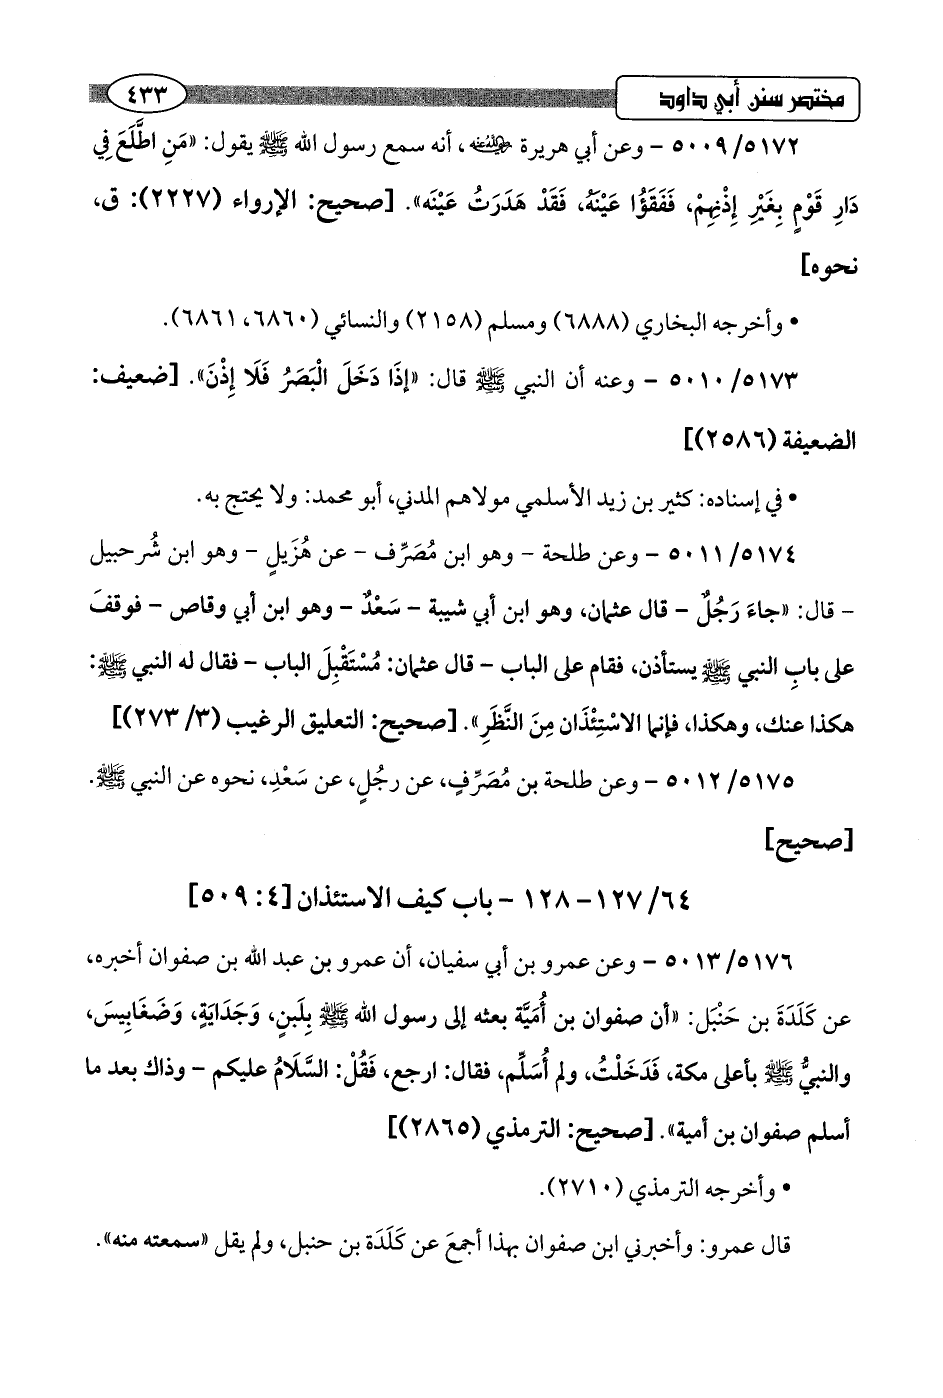 مختصر سنن أبي داود
٤٣٣
٥٠٠٩/٥١٧٢ - وعن أبي هريرة رضي الله عنه، أنه سمع رسول الله ﷺ يقول: «مَنِ اطَّلَعَ فِي
دَارِ قَوْمٍ بِغَيْرِ إِذْنِهِمْ، فَفَقَؤُا عَيْنَهُ، فَقَدْ هَدَرَتْ عَيْنَه». [صحيح: الإرواء (٢٢٢٧): ق،
نحوه]
• وأخرجه البخاري (٦٨٨٨) ومسلم (٢١٥٨) والنسائي (٦٨٦٠، ٦٨٦١).
٥٠١٠/٥١٧٣ - وعنه أن النبي ﷺ قال: «إِذَا دَخَلَ الْبَصَرُ فَلَا إِذْنَ». [ضعيف:
الضعيفة (٢٥٨٦)]
• في إسناده: كثير بن زيد الأسلمي مولاهم المدني، أبو محمد: ولا يحتج به.
٥٠١١/٥١٧٤ - وعن طلحة - وهو ابن مُصَرِّف - عن هُزَيلٍ - وهو ابن شُرحبيل
- قال: «جاءَ رَجُلٌ - قال عثمان، وهو ابن أبي شيبة - سَعْدٌ - وهو ابن أبي وقاص - فوقفَ
على بابِ النبي ﷺ يستأذن، فقام على الباب - قال عثمان: مُسْتَقْبِلَ الباب - فقال له النبي ﷺ:
هكذا عنك، وهكذا، فإنما الاسْتِئْذَان مِنَ النَّظَرِ». [صحيح: التعليق الرغيب (٣/ ٢٧٣)]
٥٠١٢/٥١٧٥ - وعن طلحة بن مُصَرِّفٍ، عن رجُلٍ، عن سَعْدِ، نحوه عن النبي ﷺ.
[صحيح]
٦٤/ ١٢٧ - ١٢٨ - باب كيف الاستئذان [٤: ٥٠٩]
٥٠١٣/٥١٧٦ - وعن عمرو بن أبي سفيان، أن عمرو بن عبد الله بن صفوان أخبره،
عن كَلَدَةَ بن حَنْبَل: «أن صفوان بن أُمَيَّة بعثه إلى رسول الله ﷺ بِلَبنٍ، وَجَدَايَةٍ، وَضَغَابِيسَ،
والنبيُّ ﷺ بأعلى مكة، فَدَخَلْتُ، ولم أُسَلِّم، فقال: ارجع، فَقُلْ: السَّلَامُ عليكم - وذاك بعد ما
أسلم صفوان بن أمية». [صحيح: الترمذي (٢٨٦٥)]
• وأخرجه الترمذي (٢٧١٠).
قال عمرو: وأخبرني ابن صفوان بهذا أجمعَ عن كَلَدَة بن حنبل، ولم يقل «سمعته منه».